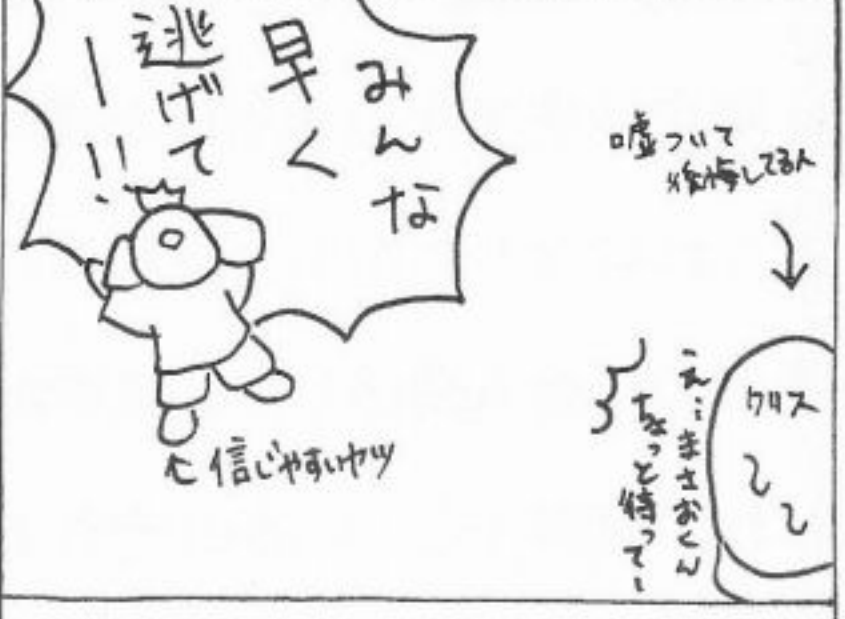 みんな
早く
逃げて
ー!!
嘘ついて
後悔してる人
クリス
え…まさおくん
ちょっと待って~
信じやすいヤツ